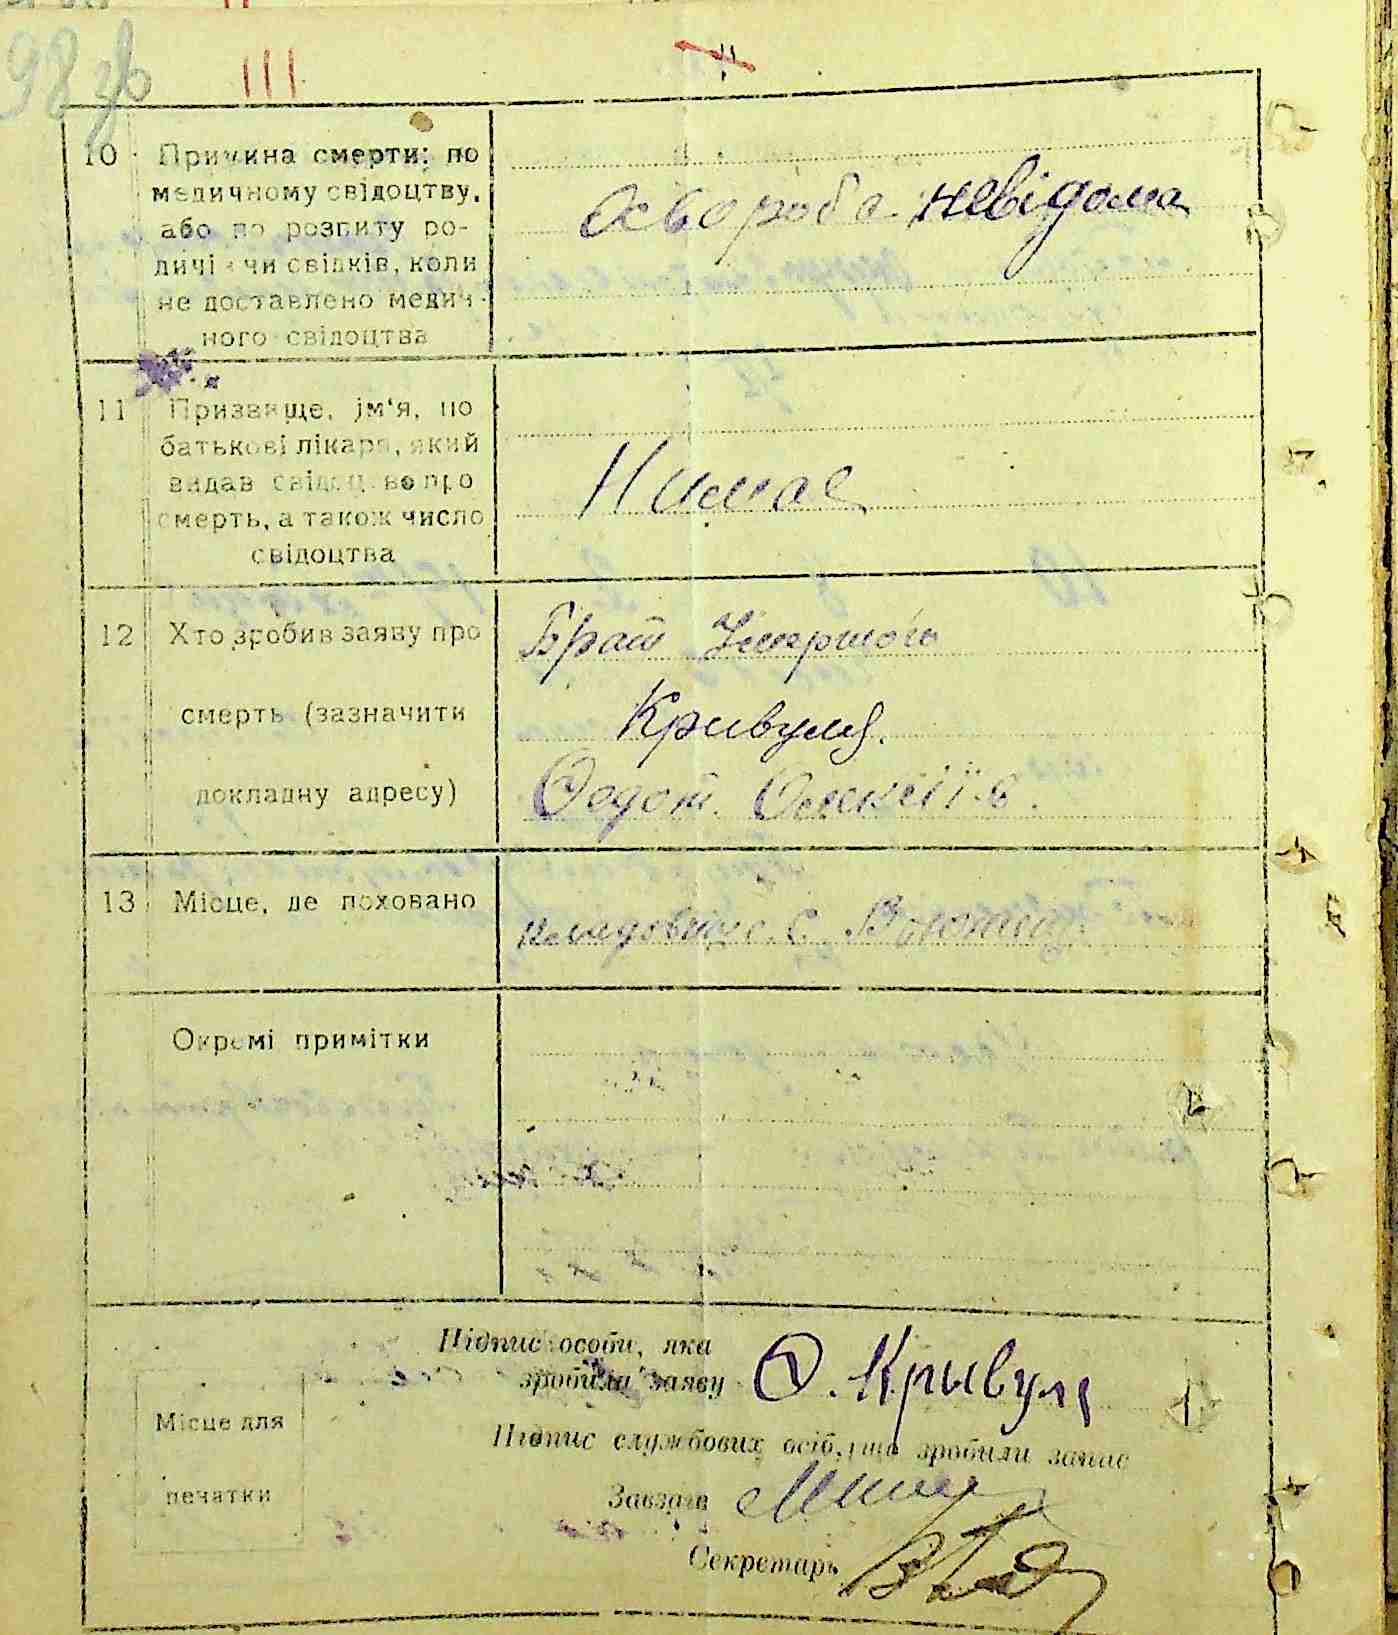 98 зв
III
10 Причина смерти: по
медичному свідоцтву,
або по розпиту ро-
дичів чи свідків, коли
не доставлено медич-
ного свідоцтва
Хвороба невідома
11 Призвище, ім'я, по
батькові лікаря, який
видав свідоцтво про
смерть, а також число
свідоцтва
Нимае
12 Хто зробив заяву про
смерть (зазначити
докладну адресу)
Брат Умершого
Кривуля.
Федот
13 Місце, де поховано
с.
Окремі примітки
Підпис особи, яка
зробила заяву О. Крывуля
Підпис службових осіб, що зробили запис
Місце для
печатки
Завзагв
Секретарь